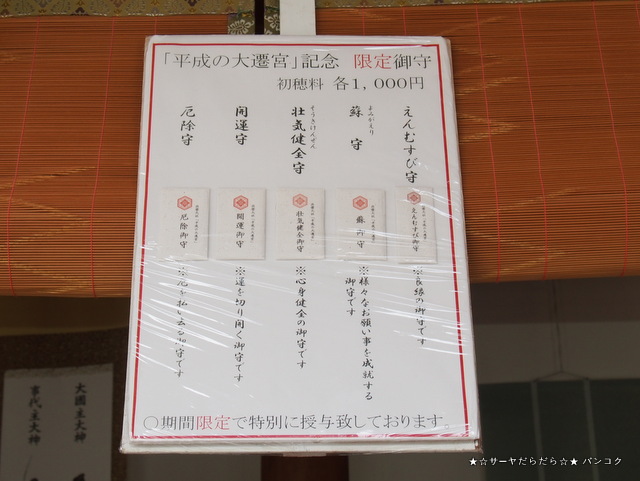 「平成の大遷宮」記念 限定御守
初穂料 各1,000円
えんむすび守
よみがえり
蘇守
そうきけんぜん
壮気健全守
開運守
厄除守
えんむすび御守
蘇御守
壮気健全御守
開運御守
厄除御守
※良縁の御守です
※様々なお願い事を成就する
御守です
※心身健全の御守です
※運を切り開く御守です
※厄を払い去る御守です
〇期間限定で特別に授与致しております。
大國主大神
事代主大神
★☆サーヤだらだら☆★ バンコク